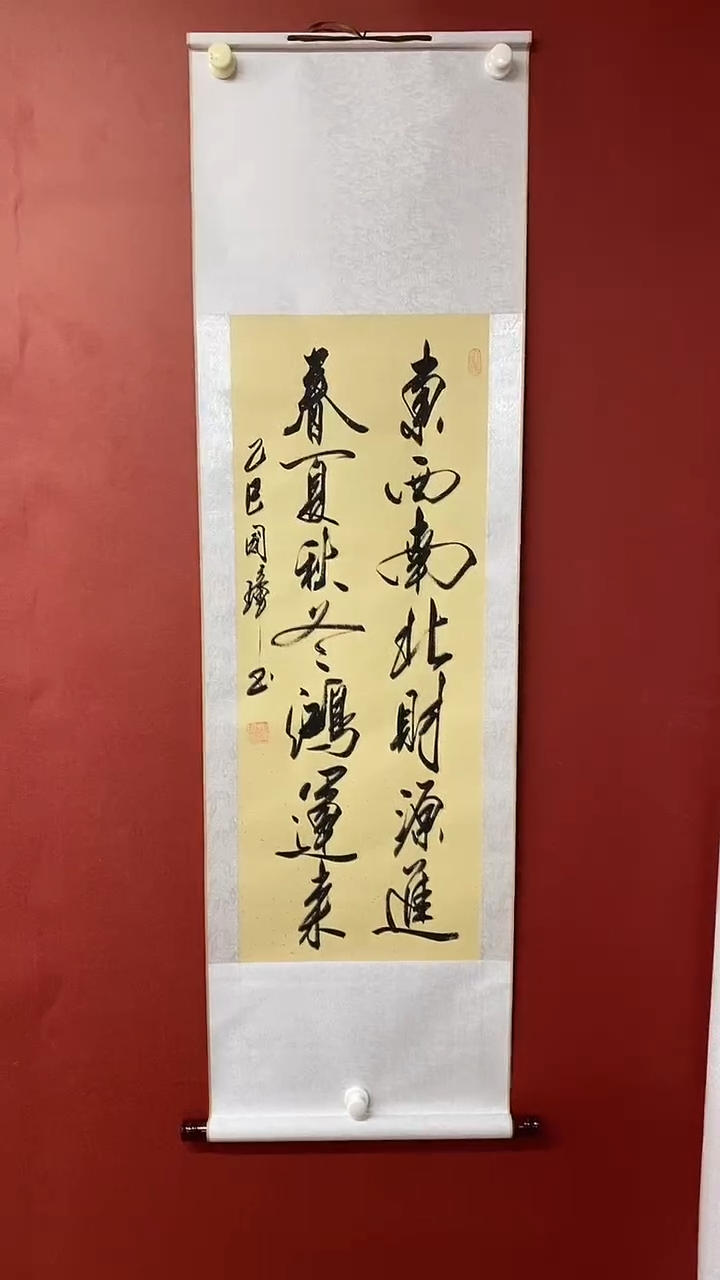 東西南北財源進
春夏秋冬鴻運来
乙巳國璋书